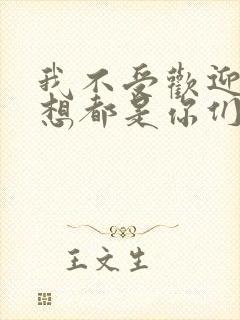 我不受歡迎
想都是你们
王文生